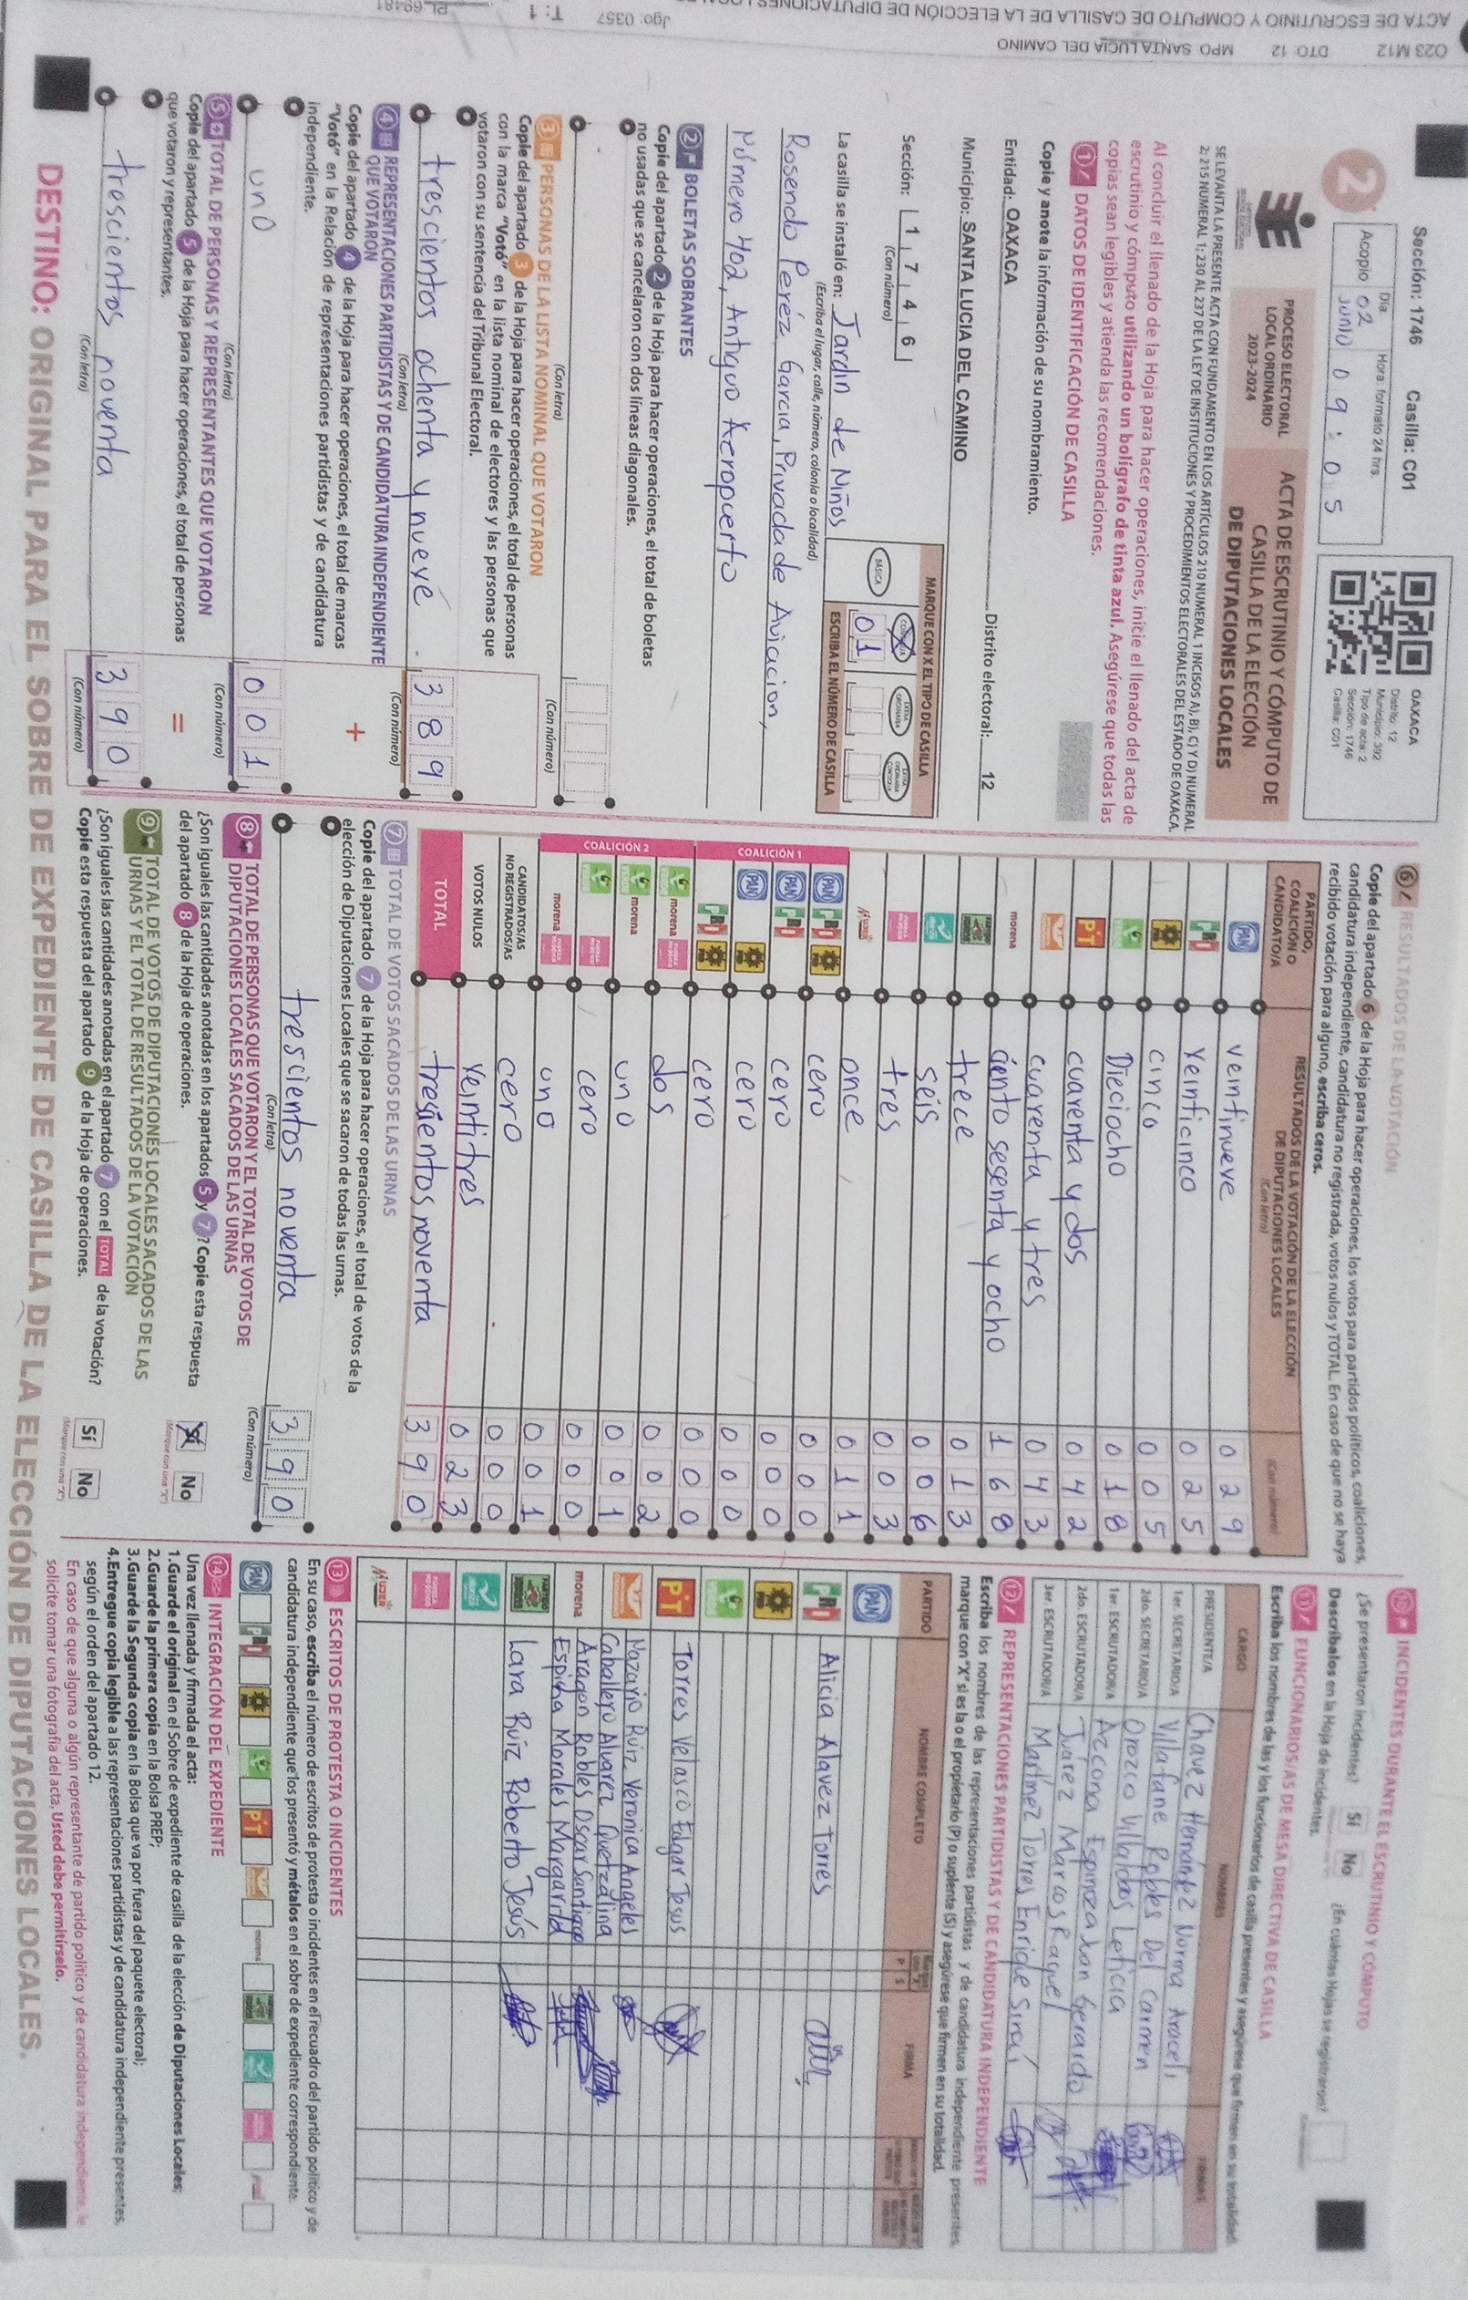 O23 M12 DTO 12 MPO SANTA LUCIA DEL CAMINO
Jgo: 0357 T: 1
Sección: 1746 Casilla: C01
2
Acopio
Día:
02
JUNIO
Hora: formato 24 hrs.
09:05
OAXACA
Distrito: 12
Municipio: 392
Tipo de acta: 2
Sección: 1746
Casilla: C01
PROCESO ELECTORAL
LOCAL ORDINARIO
2023-2024
ACTA DE ESCRUTINIO Y CÓMPUTO DE
CASILLA DE LA ELECCIÓN
DE DIPUTACIONES LOCALES
SE LEVANTA LA PRESENTE ACTA CON FUNDAMENTO EN LOS ARTÍCULOS 210 NUMERAL 1 INCISOS A), B), C) Y D) NUMERAL
2; 215 NUMERAL 1; 230 AL 237 DE LA LEY DE INSTITUCIONES Y PROCEDIMIENTOS ELECTORALES DEL ESTADO DE OAXACA.
Al concluir el llenado de la Hoja para hacer operaciones, inicie el llenado del acta de
escrutinio y cómputo utilizando un bolígrafo de tinta azul. Asegúrese que todas las
copias sean legibles y atienda las recomendaciones.
1 DATOS DE IDENTIFICACIÓN DE CASILLA
Copie y anote la información de su nombramiento.
Entidad: OAXACA Distrito electoral: 12
Municipio: SANTA LUCIA DEL CAMINO
Sección: 1 7 4 6
(Con número)
MARQUE CON X EL TIPO DE CASILLA
BÁSICA
ESCRIBA EL NÚMERO DE CASILLA
01
La casilla se instaló en: Jardin de Niños
(Escriba el lugar, calle, número, colonia o localidad)
Rosendo Peréz Garcia, Privada de Aviacion,
Número 402, Antiguo Aeropuerto
2 BOLETAS SOBRANTES
Copie del apartado 2 de la Hoja para hacer operaciones, el total de boletas
no usadas que se cancelaron con dos líneas diagonales.
(Con letra) (Con número)
3 PERSONAS DE LA LISTA NOMINAL QUE VOTARON
Copie del apartado 3 de la Hoja para hacer operaciones, el total de personas
con la marca "Votó" en la lista nominal de electores y las personas que
votaron con su sentencia del Tribunal Electoral.
trescientos ochenta y nueve 389
(Con letra) (Con número)
4 REPRESENTACIONES PARTIDISTAS Y DE CANDIDATURA INDEPENDIENTE
QUE VOTARON
Copie del apartado 4 de la Hoja para hacer operaciones, el total de marcas
"Votó" en la Relación de representaciones partidistas y de candidatura
independiente.
+
uno 001
(Con letra) (Con número)
5 TOTAL DE PERSONAS Y REPRESENTANTES QUE VOTARON
Copie del apartado 5 de la Hoja para hacer operaciones, el total de personas
que votaron y representantes.
=
trescientos noventa 390
(Con letra) (Con número)
6 RESULTADOS DE LA VOTACIÓN
Copie del apartado 6 de la Hoja para hacer operaciones, los votos para partidos políticos, coaliciones,
candidatura independiente, candidatura no registrada, votos nulos y TOTAL. En caso de que no se haya
recibido votación para alguno, escriba ceros.
PARTIDO,
COALICIÓN O
CANDIDATO/A
RESULTADOS DE LA VOTACIÓN DE LA ELECCIÓN
DE DIPUTACIONES LOCALES
(Con letra)
(Con número)
PAN veintinueve 029
PRI Veinticinco 025
PRD cinco 005
Dieciocho 018
PT cuarenta y dos 042
cuarenta y tres 043
morena ciento sesenta y ocho 168
trece 013
seis 006
tres 003
MUJER once 011
COALICIÓN 1
PAN PRI PRD cero 000
PAN PRI cero 000
PAN PRD cero 000
PRI PRD cero 000
COALICIÓN 2
morena dos 002
morena uno 001
cero 000
morena uno 001
CANDIDATOS/AS
NO REGISTRADOS/AS cero 000
VOTOS NULOS Veintitres 023
TOTAL tresientos noventa 390
7 TOTAL DE VOTOS SACADOS DE LAS URNAS
Copie del apartado 7 de la Hoja para hacer operaciones, el total de votos de la
elección de Diputaciones Locales que se sacaron de todas las urnas.
trescientos noventa 390
(Con letra) (Con número)
8 TOTAL DE PERSONAS QUE VOTARON Y EL TOTAL DE VOTOS DE
DIPUTACIONES LOCALES SACADOS DE LAS URNAS
¿Son iguales las cantidades anotadas en los apartados 5 y 7? Copie esta respuesta
del apartado 8 de la Hoja de operaciones.
Sí No
(Marque con una "X")
9 TOTAL DE VOTOS DE DIPUTACIONES LOCALES SACADOS DE LAS
URNAS Y EL TOTAL DE RESULTADOS DE LA VOTACIÓN
¿Son iguales las cantidades anotadas en el apartado 7 con el TOTAL de la votación?
Copie esta respuesta del apartado 9 de la Hoja de operaciones.
Sí No
(Marque con una "X")
10 INCIDENTES DURANTE EL ESCRUTINIO Y CÓMPUTO
¿Se presentaron incidentes? Sí No ¿En cuántas Hojas se registraron?
Descríbalos en la Hoja de incidentes.
11 FUNCIONARIOS/AS DE MESA DIRECTIVA DE CASILLA
Escriba los nombres de las y los funcionarios de casilla presentes y asegúrese que firmen en su totalidad.
CARGO NOMBRES FIRMAS
PRESIDENTE/A Chavez Hernández Norma Araceli
1er. SECRETARIO/A Villafañe Robles Del Carmen
2do. SECRETARIO/A Orozco Villalobos Leticia
1er. ESCRUTADOR/A Azcona Espinoza Juan Gerardo
2do. ESCRUTADOR/A Juárez Marcos Raquel
3er. ESCRUTADOR/A Martínez Torres Enrique Siraí
12 REPRESENTACIONES PARTIDISTAS Y DE CANDIDATURA INDEPENDIENTE
Escriba los nombres de las representaciones partidistas y de candidatura independiente presentes,
marque con "X" si es la o el propietario (P) o suplente (S) y asegúrese que firmen en su totalidad.
PARTIDO NOMBRE COMPLETO P S FIRMA
PAN
PRI Alicia Alavez Torres
PRD
PT Torres Velasco Edgar Jesus
Nazario Ruiz Veronica Angeles
Caballero Alvarez Quetzalina
morena Aragon Robles Oscar Santiago
Espina Morales Margarita
Lara Ruiz Roberto Jesús
MUJER
13 ESCRITOS DE PROTESTA O INCIDENTES
En su caso, escriba el número de escritos de protesta o incidentes en el recuadro del partido político y de
candidatura independiente que los presentó y métalos en el sobre de expediente correspondiente.
PAN PRI PRD PT morena
14 INTEGRACIÓN DEL EXPEDIENTE
Una vez llenada y firmada el acta:
1.Guarde el original en el Sobre de expediente de casilla de la elección de Diputaciones Locales;
2.Guarde la primera copia en la Bolsa PREP;
3.Guarde la Segunda copia en la Bolsa que va por fuera del paquete electoral;
4.Entregue copia legible a las representaciones partidistas y de candidatura independiente presentes,
según el orden del apartado 12.
En caso de que alguna o algún representante de partido político y de candidatura independiente, le
solicite tomar una fotografía del acta, Usted debe permitírselo.
DESTINO: ORIGINAL PARA EL SOBRE DE EXPEDIENTE DE CASILLA DE LA ELECCIÓN DE DIPUTACIONES LOCALES.